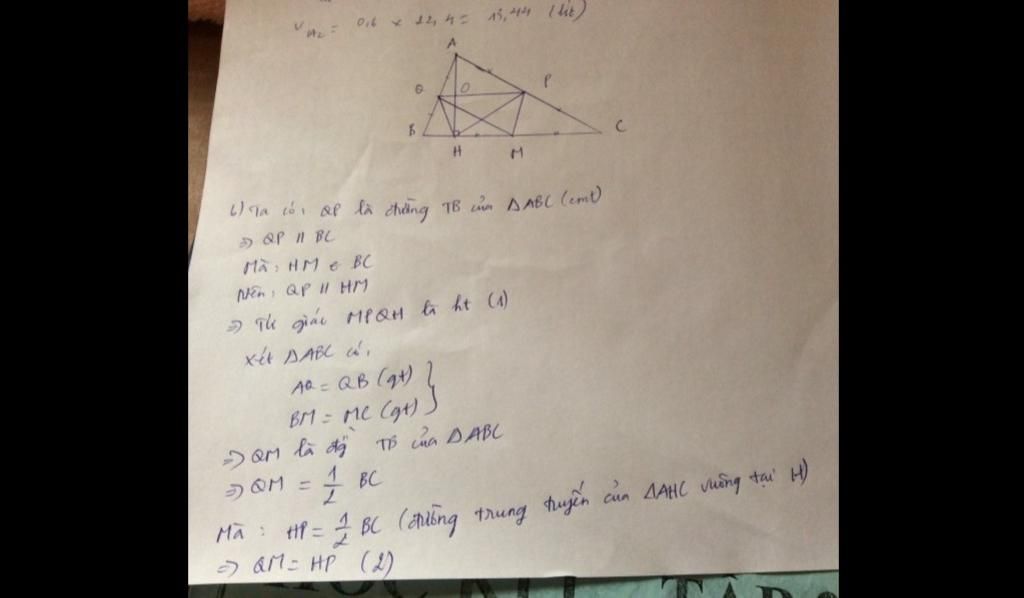 V H2 = 0,6 x 22,4 = 13,44 (lít)
A
Q O P
B H M C
b) Ta có: QP là đường TB của ΔABC (cmt)
=> QP // BC
Mà: HM ∈ BC
Nên: QP // HM
=> Tứ giác MPQH là ht (1)
Xét ΔABC có:
AQ = QB (gt)
BM = MC (gt)
=> QM là đg TB của ΔABC
=> QM = 1/2 BC
Mà: HP = 1/2 BC (đường trung tuyến của ΔAHC vuông tại H)
=> QM = HP (2)